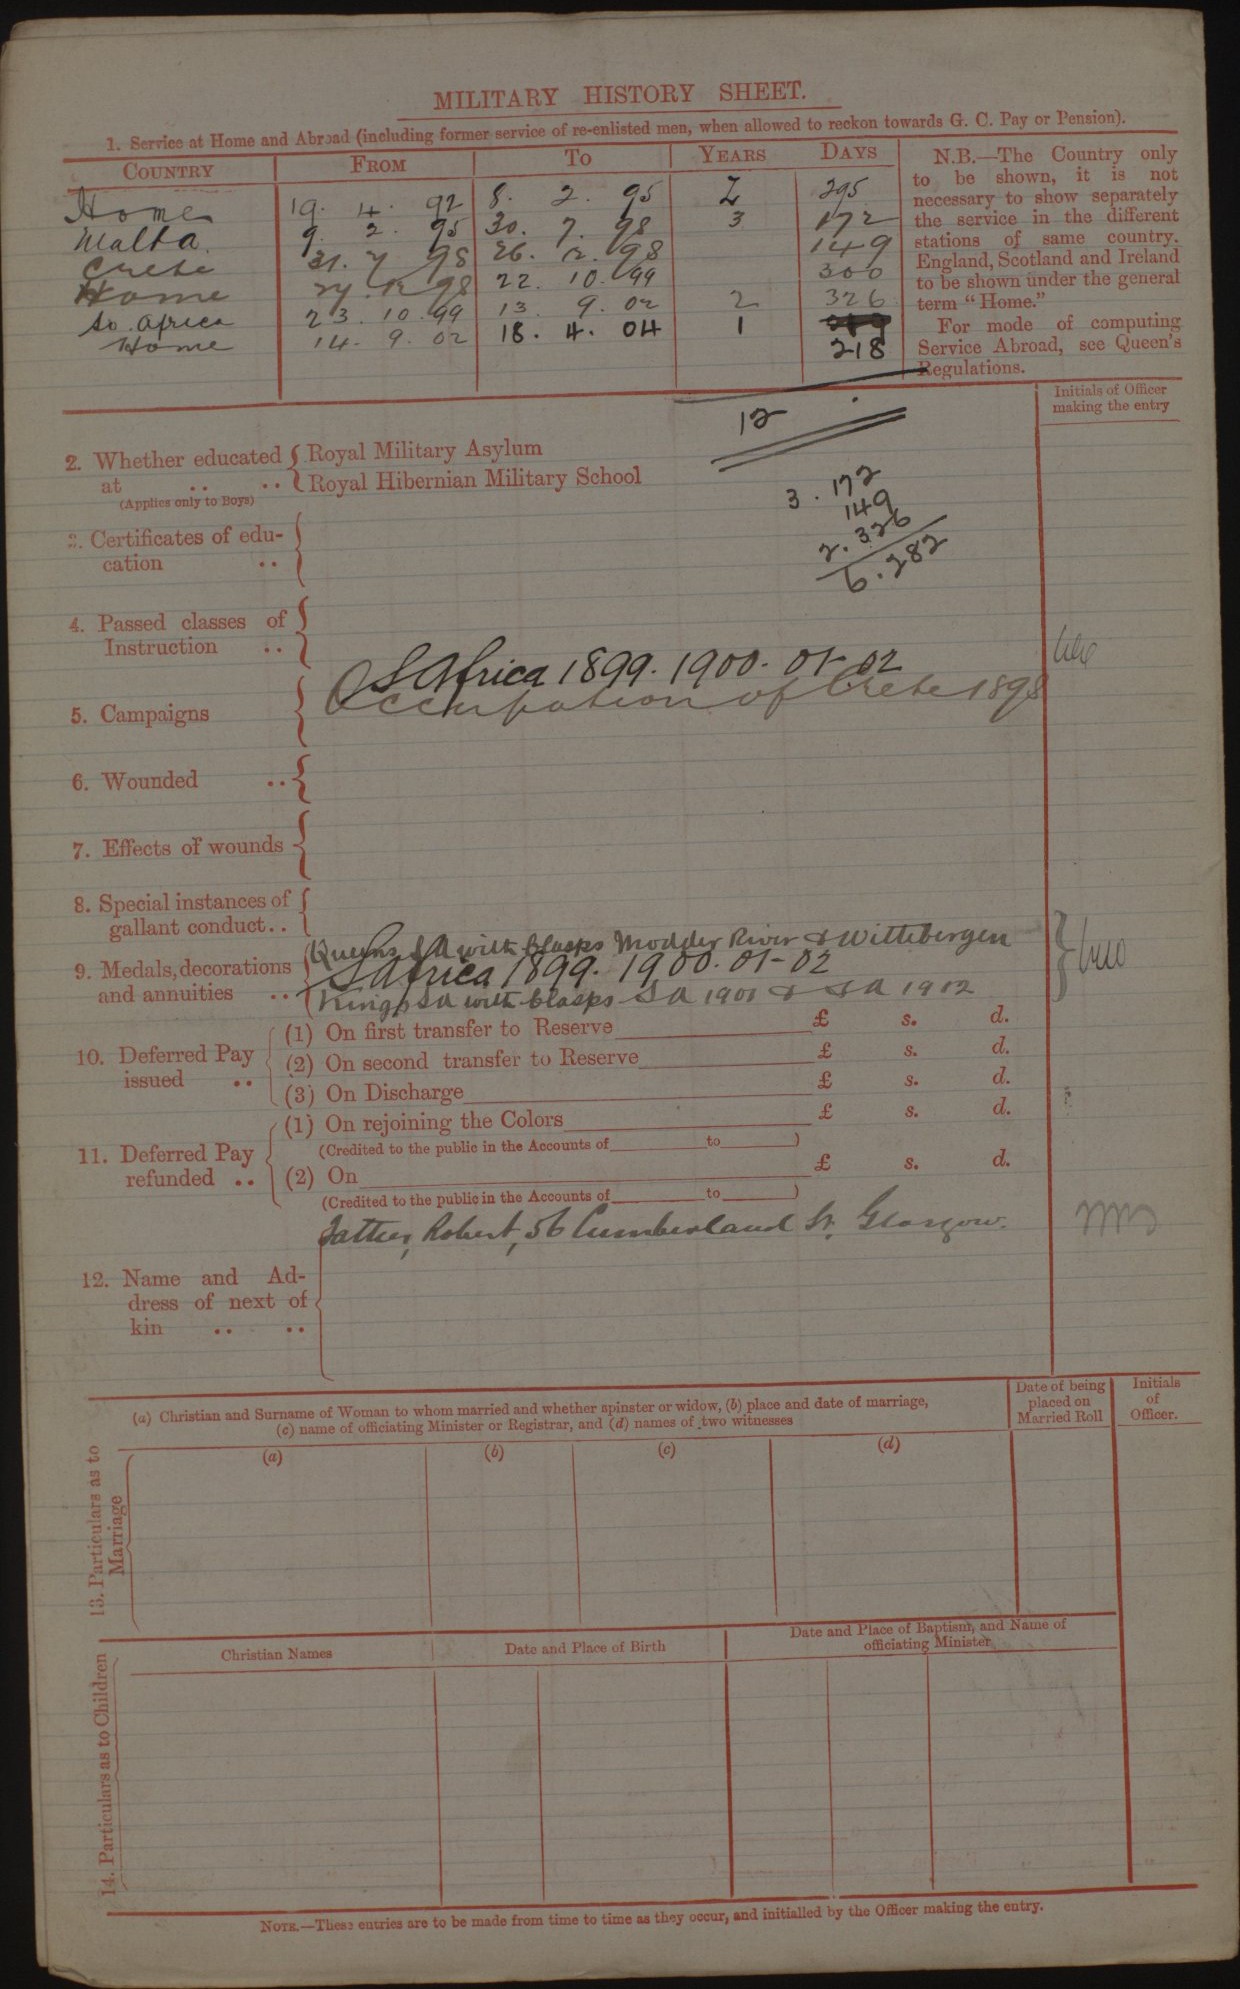 MILITARY HISTORY SHEET.
1. Service at Home and Abroad (including former service of re-enlisted men, when allowed to reckon towards G. C. Pay or Pension).
COUNTRY FROM TO YEARS DAYS
Home 19. 4. 92 8. 2. 95 2 295
Malta. 9. 2. 95 30. 7. 98 3 172
Crete 31. 7 98 26. 12. 98 149
Home 27. 12 98 22. 10. 99 300
So. Africa 23. 10. 99 13. 9. 02 2 326
Home 14. 9. 02 18. 4. 04 1 218
N.B.—The Country only
to be shown, it is not
necessary to show separately
the service in the different
stations of same country.
England, Scotland and Ireland
to be shown under the general
term "Home."
For mode of computing
Service Abroad, see Queen's
Regulations.
Initials of Officer
making the entry
12 .
2. Whether educated Royal Military Asylum
at .. .. Royal Hibernian Military School
(Applies only to Boys)
3 . 172
149
2. 326
6. 282
3. Certificates of edu-
cation ..
4. Passed classes of
Instruction ..
S Africa 1899. 1900. 01-02
Occupation of Crete 1898
5. Campaigns
6. Wounded ..
7. Effects of wounds
8. Special instances of
gallant conduct..
Queens SA with Clasps Modder River & Wittebergen
9. Medals, decorations S Africa 1899. 1900. 01-02
and annuities .. Kings SA with Clasps SA 1901 & SA 1902
10. Deferred Pay
issued ..
(1) On first transfer to Reserve £ s. d.
(2) On second transfer to Reserve £ s. d.
(3) On Discharge £ s. d.
11. Deferred Pay
refunded ..
(1) On rejoining the Colors £ s. d.
(Credited to the public in the Accounts of to )
(2) On £ s. d.
(Credited to the public in the Accounts of to )
Father, Robert, 56 Cumberland St. Glasgow.
12. Name and Ad-
dress of next of
kin .. ..
13. Particulars as to
Marriage
(a) Christian and Surname of Woman to whom married and whether spinster or widow, (b) place and date of marriage,
(c) name of officiating Minister or Registrar, and (d) names of two witnesses
Date of being
placed on
Married Roll
Initials
of
Officer.
(a) (b) (c) (d)
14. Particulars as to Children
Christian Names Date and Place of Birth
Date and Place of Baptism, and Name of
officiating Minister
NOTE.—These entries are to be made from time to time as they occur, and initialled by the Officer making the entry.